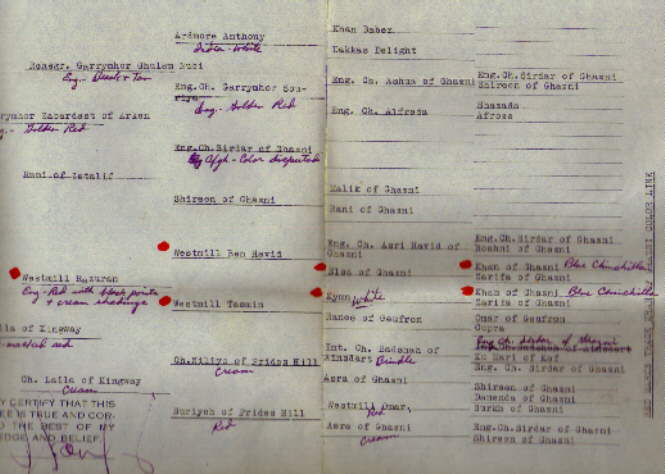 Ardmore Anthony
Indian - White
Khan Baber
Kakkas Delight
Ronsgr. Garrymhor Ghulam Nuci
Eng. - Black & Tan
Eng. Ch. Garrymhor Sou-
riya
Eng. - Golden Red
Eng. Ch. Ashna of Ghazni
Eng.Ch.Sirdar of Ghazni
Shireen of Ghazni
Eng. Ch. Alfreda
Shazada
Afroza
rymhor Zabardast of Arken
g. - Golden Red
Eng.Ch.Sirdar of Ghazni
Afgh - Color disputed
Rani of Zetalif
Shireen of Ghazni
Malik of Ghazni
Rani of Ghazni
Westmill Ben Havid
Eng. Ch. Asri Havid of
Ghazni
Eng.Ch.Sirdar of Ghazni
Roshni of Ghazni
Westmill Razuran
Eng - Red with black points
+ cream shadings
Elsa of Ghazni
Khan of Ghazni Blue Chinchilla
Zarifa of Ghazni
Westmill Tamsin
Kym White
Khan of Ghazni Blue Chinchilla
Zarifa of Ghazni
Ranee of Geufron
Omar of Geufron
Gopra
la of Kingway
- masked red
Ch. Ziliya of Prides Hill
Cream
Int. Ch. Badshah of
Ainsdart Brindle
Eng Ch. Sirdar of Ghazni
Ku Mari of Kaf
Ch. Laila of Kingway
Cream
Asra of Ghazni
Eng. Ch. Sirdar of Ghazni
Shireen of Ghazni
Suriyeh of Prides Hill
Red
Westmill Omar
Red
Danenda of Ghazni
Surkh of Ghazni
Asra of Ghazni
Cream
Eng.Ch.Sirdar of Ghazni
Shireen of Ghazni
Y CERTIFY THAT THIS
E IS TRUE AND COR-
O THE BEST OF MY
EDGE AND BELIEF
COLOR LINE